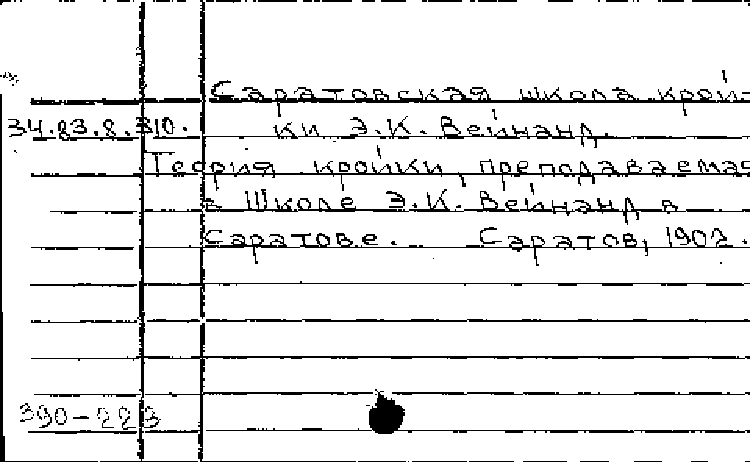 Саратовская школа крой-
34.83.8.310. ки Э.К. Вейнанд.
Теория кройки, преподаваемая
в Школе Э.К. Вейнанд в
Саратове. Саратов, 1902.
390-223